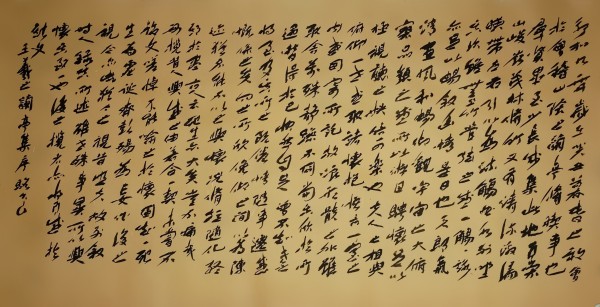 永和九年歲在癸丑暮春之初會
於會稽山陰之蘭亭脩禊事也
羣賢畢至少長咸集此地有崇
山峻嶺茂林脩竹又有清流激湍
映帶左右引以為流觴曲水列坐
其次雖無絲竹管絃之盛一觴一詠
亦足以暢敘幽情是日也天朗氣
清惠風和暢仰觀宇宙之大俯
察品類之盛所以遊目騁懷足以
極視聽之娛信可樂也夫人之相與
俯仰一世或取諸懷抱悟言一室之
內或因寄所託放浪形骸之外雖
取舍萬殊靜躁不同當其欣於所
遇暫得於己快然自足曾不知老之
將至及其所之既倦情隨事遷感
慨係之矣向之所欣俛仰之間以為陳
迹猶不能不以之興懷況脩短隨化終
期於盡古人云死生亦大矣豈不痛哉
每攬昔人興感之由若合一契未嘗不
臨文嗟悼不能喻之於懷固知一死
生為虛誕齊彭殤為妄作後之
視今亦由今之視昔悲夫故列敘
時人錄其所述雖世殊事異所以興
懷其致一也後之攬者亦將有感於
斯文
王羲之蘭亭集序